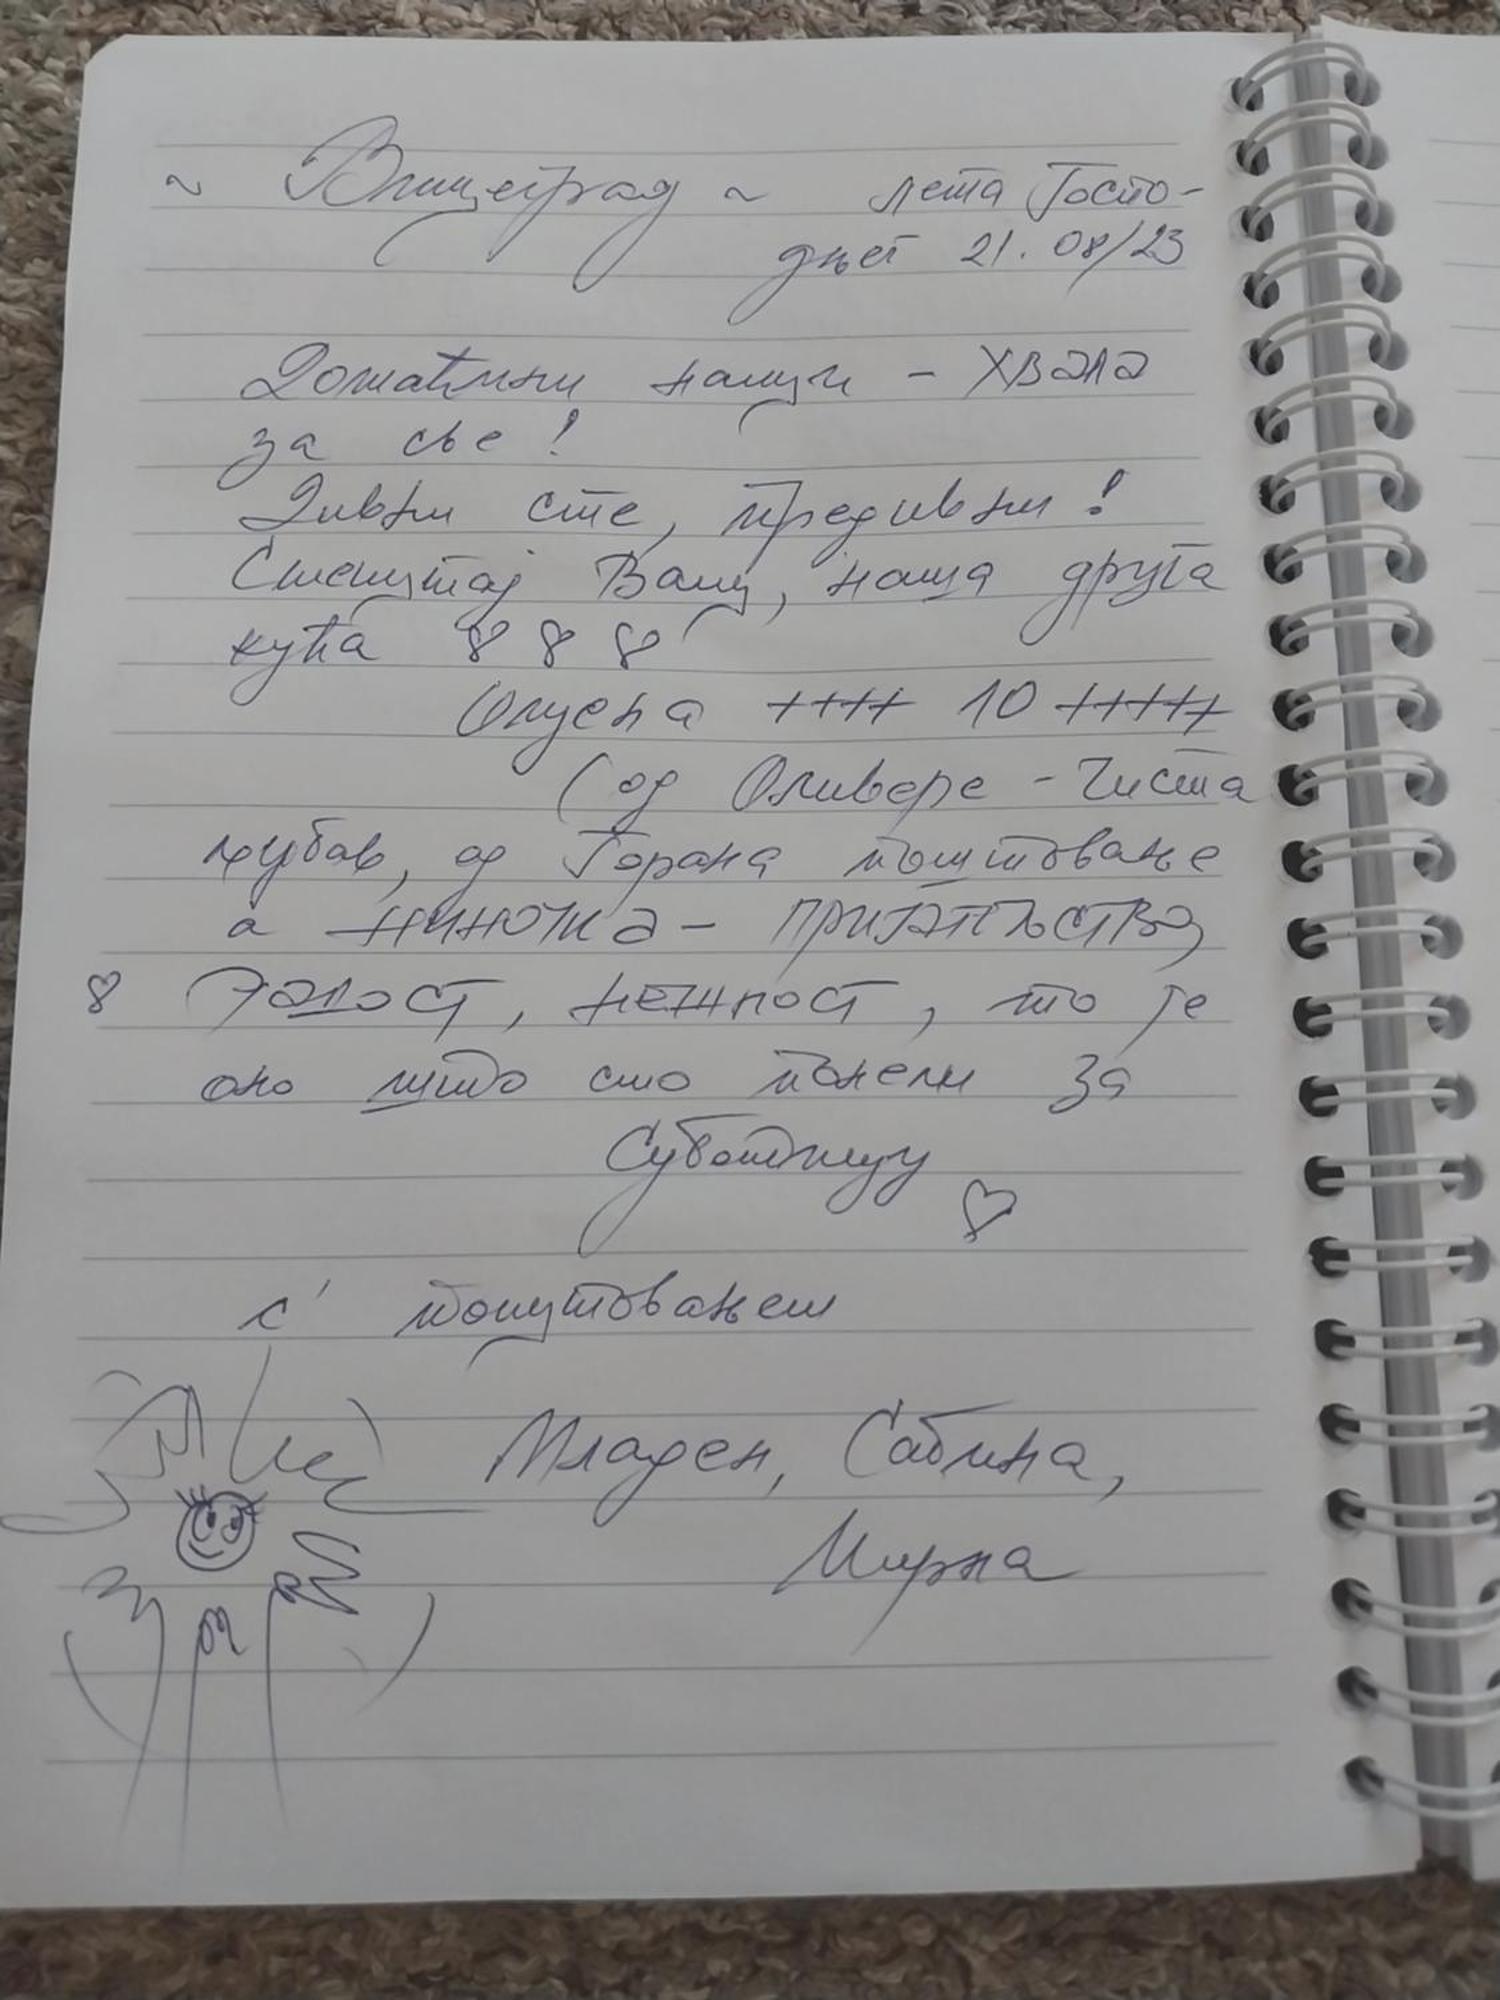 ~ Вишеград ~ лета Госпо-
дњег 21. 08/23
Домаћини наши - ХВАЛА
за све!
Дивни сте, предивни!
Смештај Ваш, наша друга
кућа
Оцена ++++ 10 +++++
(од Оливере - Чиста
љубав, од Горана поштовање
а - ПРИЈАТЕЉСТВО,
, НЕЖНОСТ, то је
оно што смо понели за
Суботицу
с' поштовањем
Младен, Сабина,
Мирна